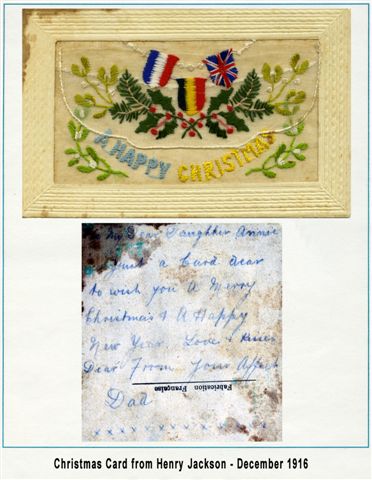 A HAPPY CHRISTMAS
My Dear Daughter Annie
Just a Card dear
to wish you a Merry
Christmas & A Happy
New Year. Love & Kisses
Dear From Your Affect
Fabrication Française
Dad
x x x x x x x x x x x
Christmas Card from Henry Jackson - December 1916